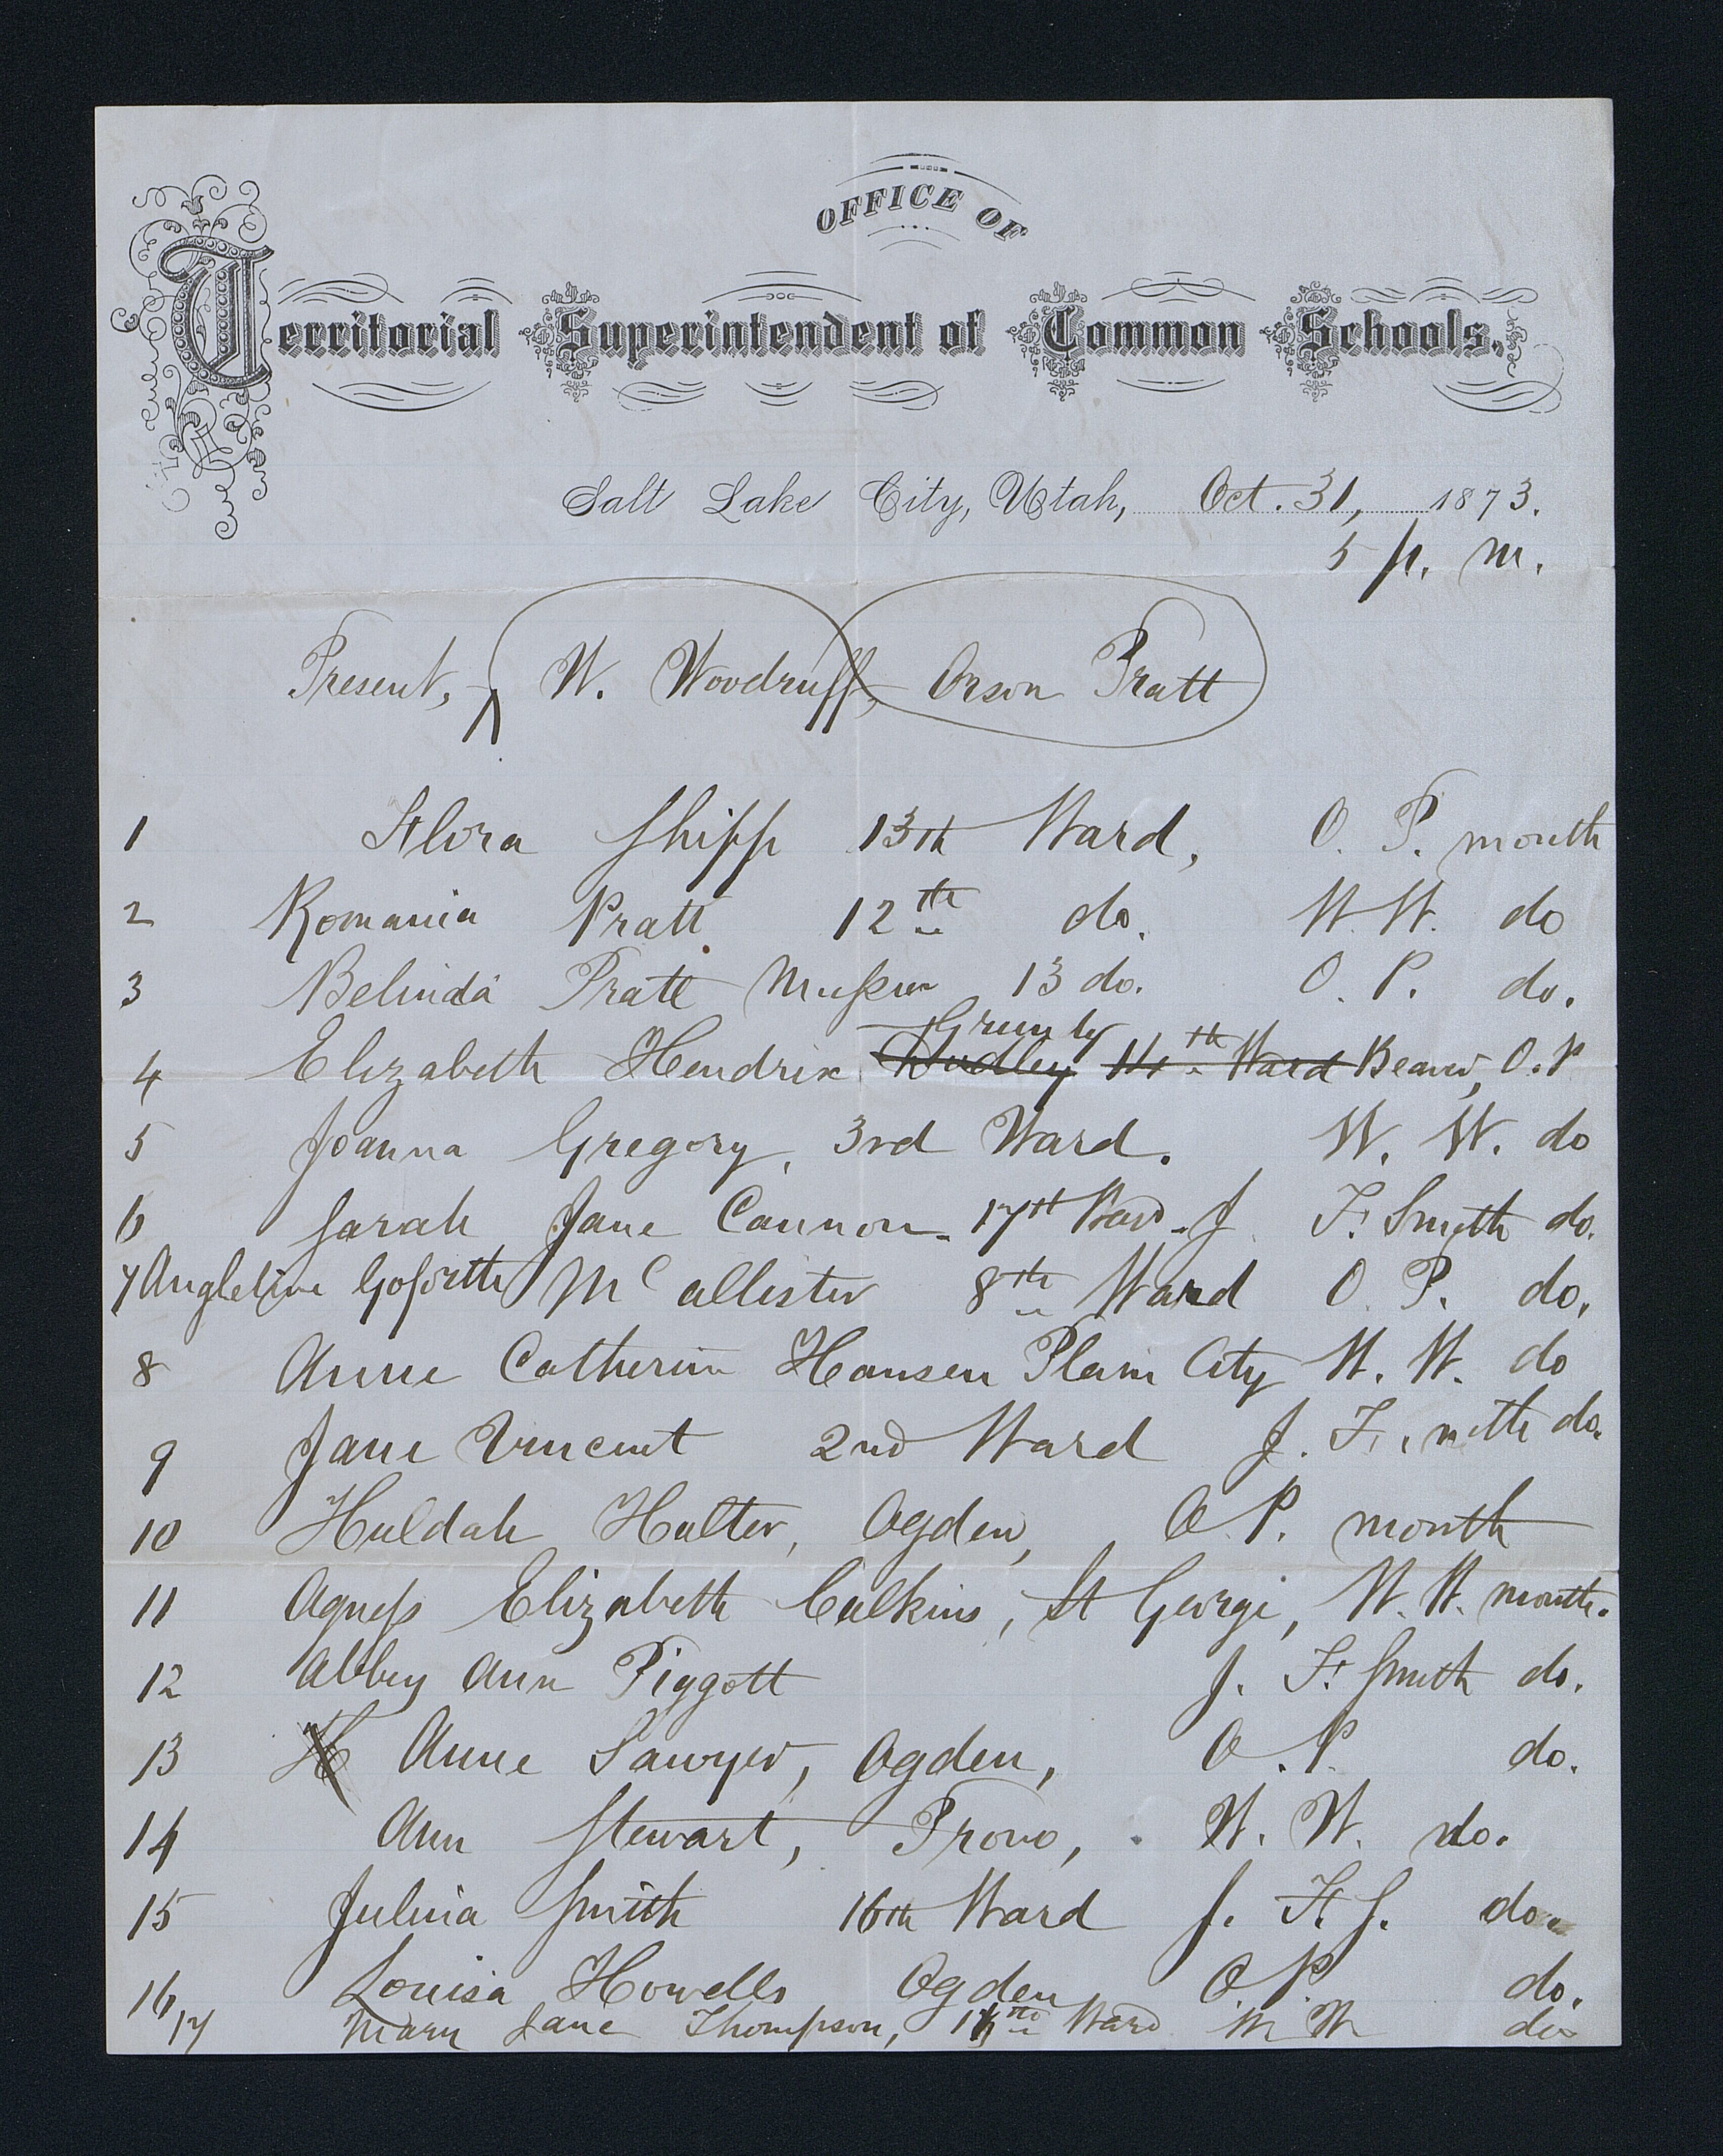 OFFICE OF
Territorial Superintendent of Common Schools,
Salt Lake City, Utah, Oct. 31, 1873.
5 p. m.
Present, W. Woodruff, Orson Pratt
1 Flora Shipp 13th Ward, O. P. month
2 Romania Pratt 12th do. W. W. do
3 Belinda Pratt Musser 13 do. O. P. do.
Grundy
4 Elizabeth Hendrix Dudley 14th Ward Beaver, O. P
5 Joanna Gregory, 3rd Ward. W. W. do
6 Sarah Jane Cannon 17th Ward J F. Smith do.
7 Angleline Goforth McAllister 8th Ward O. P. do.
8 Anne Catherine Hansen Plain City W. W. do
9 Jane Vincent 2nd Ward J. F. do.
10 Huldah Halter, Ogden, O. P. month
11 Agness Elizabeth Calkins, St George, W. W. month.
12 Abbey Ann Piggott J. F. Smith do.
13 H Anne Sawyer, Ogden, O. P. do.
14 Ann Stewart, Provo, W. W. do.
15 Julina Smith 16th Ward J. F. S. do.
16 Louisa Howells Ogden O. P. do.
17 Mary Jane Thompson, Ward W W do